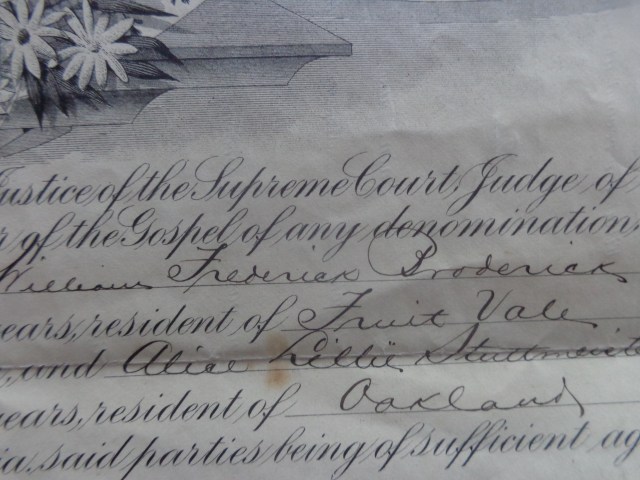 Justice of the Supreme Court, Judge of
of the Gospel of any denomination,
William Frederick Broderick
years, resident of Fruit Vale
and Alice Lillie
years, resident of Oakland
said parties being of sufficient ag